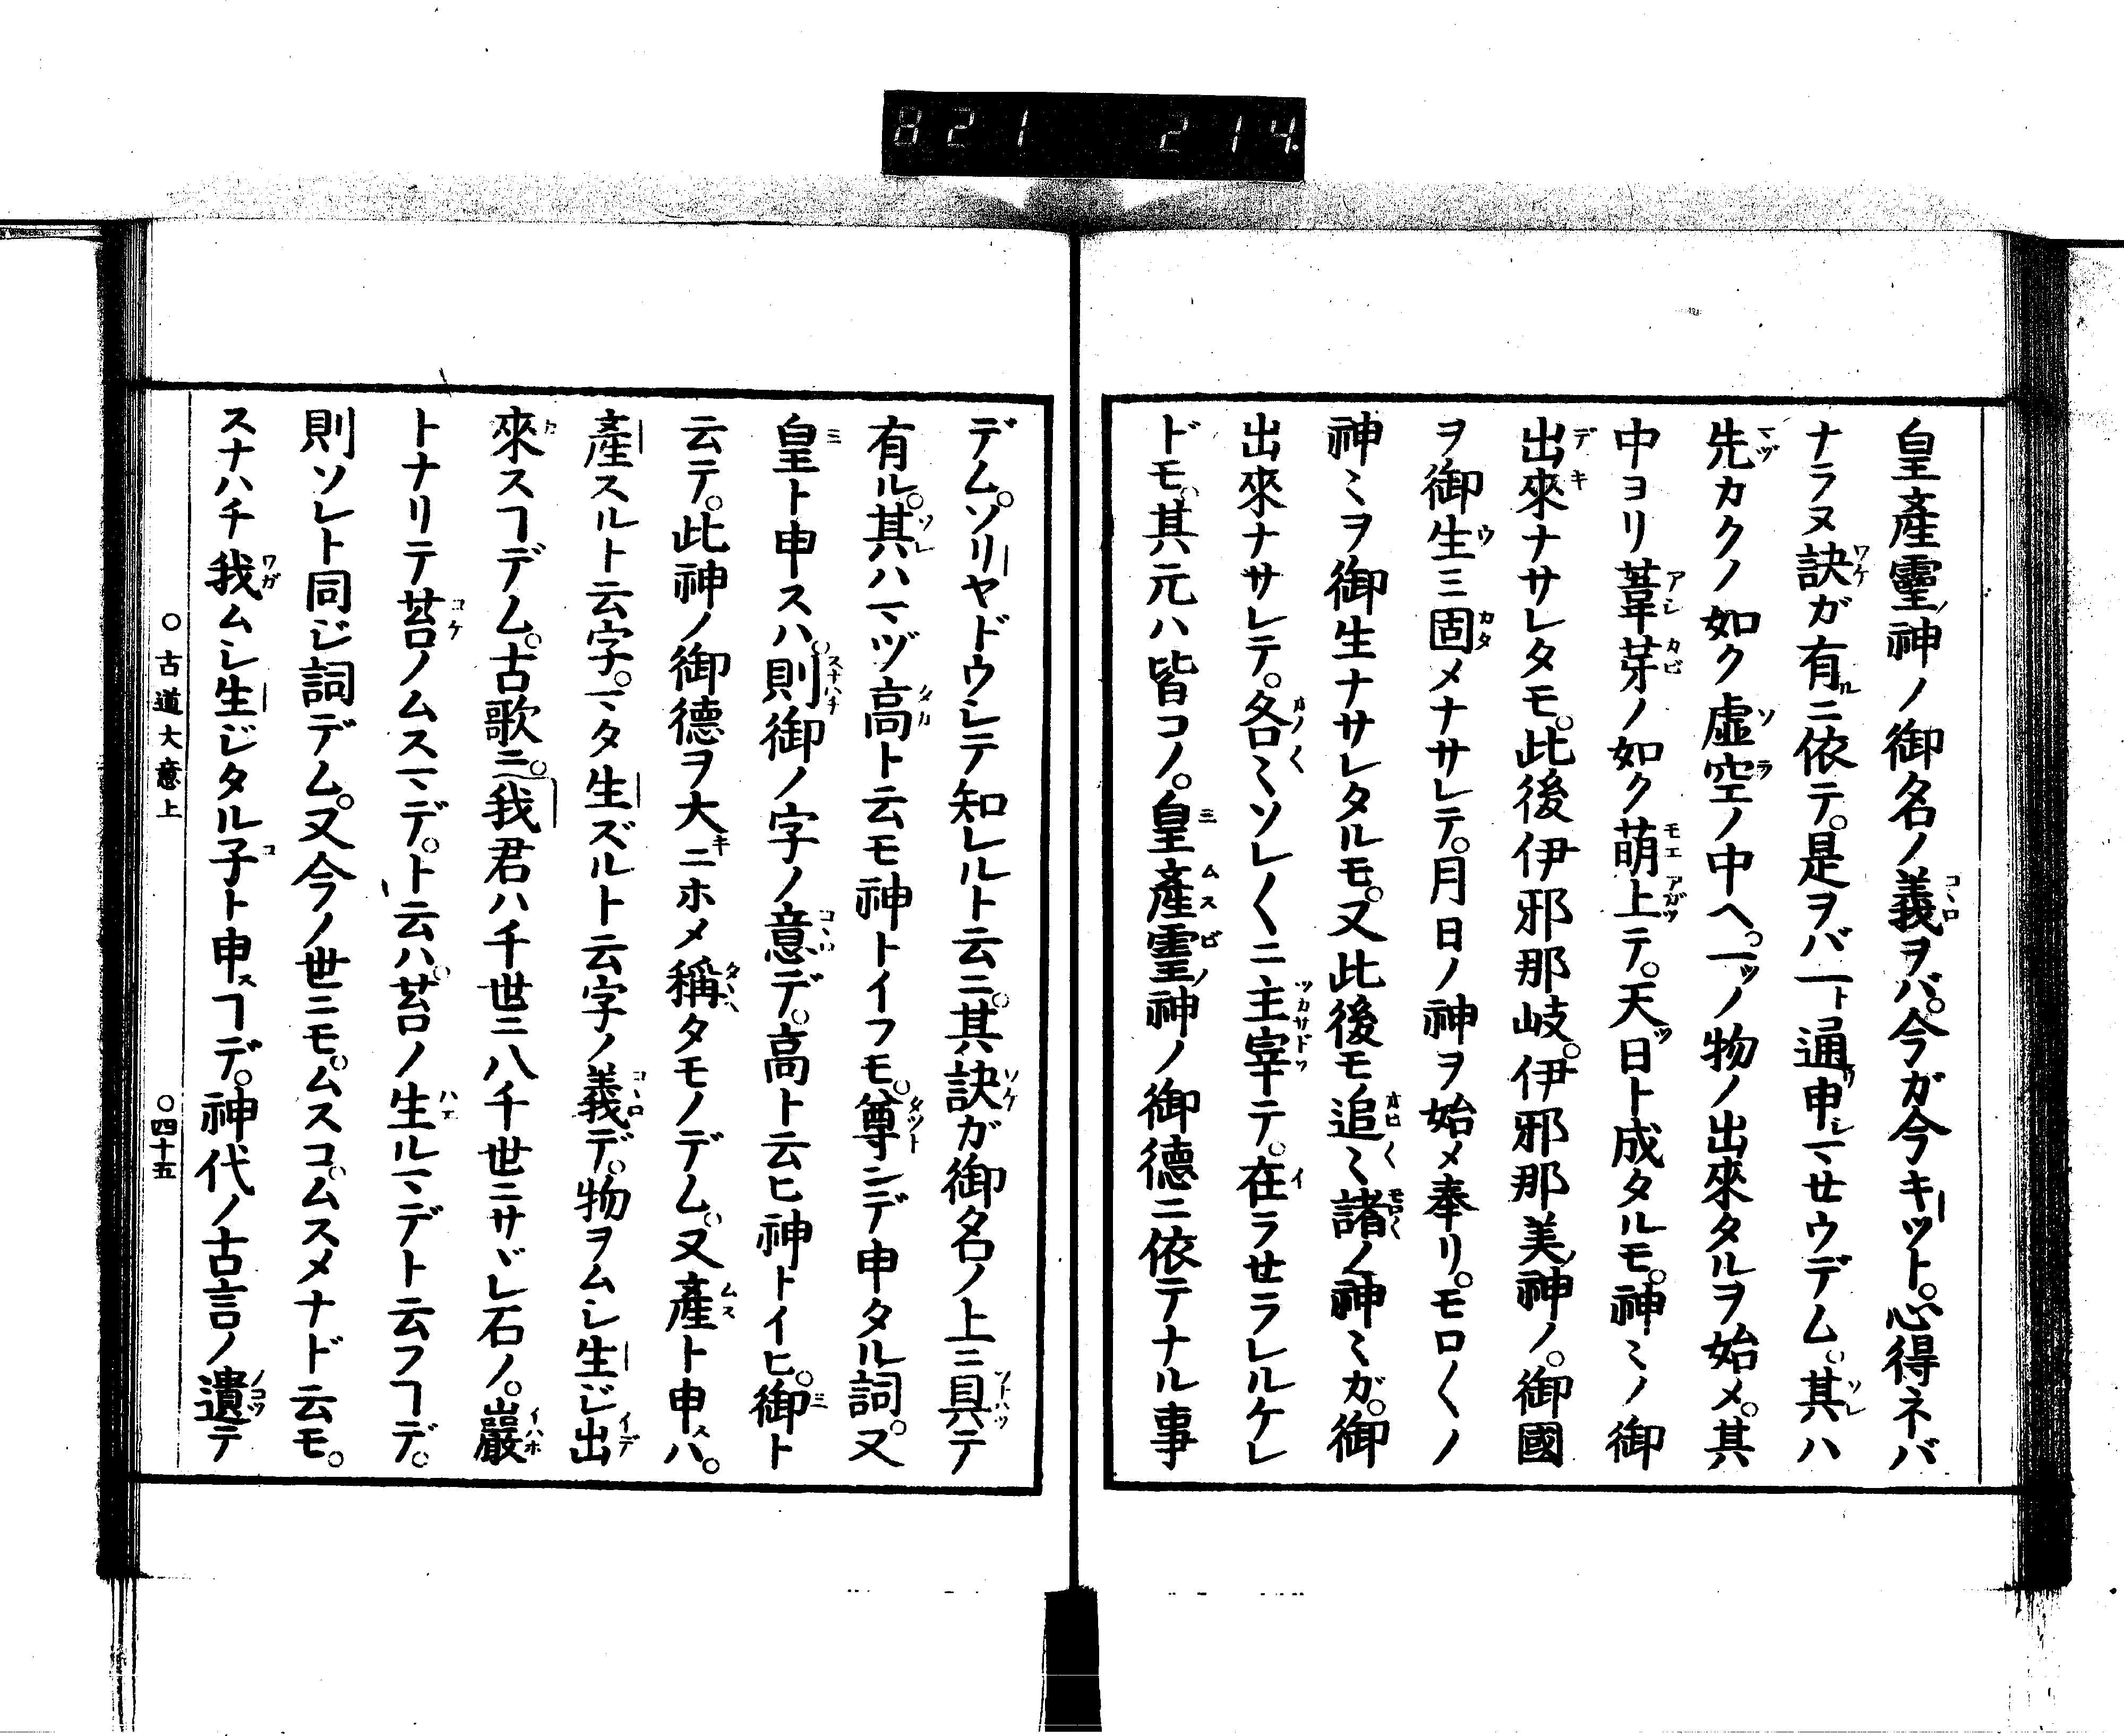 821 214.
皇産靈ノ神ノ御名ノ義ヲバ。今ガ今キーット。心得ネバ
ナラヌ訣ガ有ルニ依テ。是ヲバ一ト通申シマセウデム。其ハ
先カクノ如ク虚空ノ中ヘ。一ッノ物ノ出來タルヲ始メ。其
中ヨリ葦芽ノ如ク萌上テ。天ッ日ト成タルモ。神ミノ御
出來ナサレタモ。此後伊邪那岐。伊邪那美ノ神ノ。御國
ヲ御生ミ固メナサレテ。月日ノ神ヲ始メ奉リ。モロ〱ノ
神ミヲ御生ナサレタルモ。又此後モ追ミ諸ノ神ミガ。御
出來ナサレテ。各ミソレ〱ニ主宰テ。在ラセラレルケレ
ドモ。其元ハ皆コノ。皇産靈ノ神ノ御德ニ依テナル事
デム。ソリヤドウシテ知レルト云ニ。其訣ガ御名ノ上ニ具テ
有ル。其ハマヅ高ト云モ神トイフモ。尊ンデ申タル詞。又
皇ト申スハ。則御ノ字ノ意デ。高ト云ヒ神トイヒ。御ト
云テ。此神ノ御德ヲ大キニホメ稱タモノデム。又產ト申スハ。
產スルト云字。マタ生ズルト云字ノ義デ。物ヲムシ生ジ出
來スヿデム。古歌ニ。我君ハ千世ニ八千世ニサヾレ石ノ。巖
トナリテ苔ノムスマデ。ト云ハ。苔ノ生ルマデト云フヿデ。
則ソレト同じ詞デム。又今ノ世ニモ。ムスコ。ムスメナド云モ。
スナハチ我ムシ生ジタル子ト申スヿデ。神代ノ古言ノ遺テ
○古道大意上 ○四十五